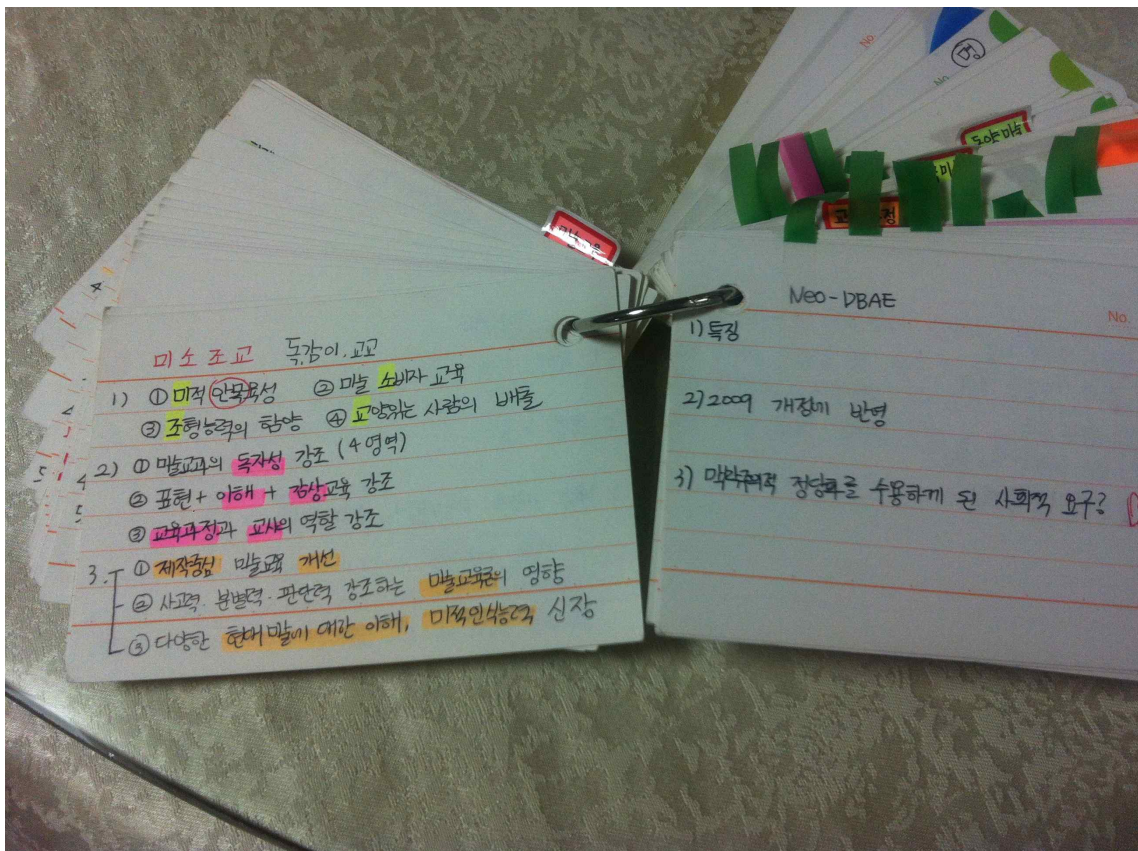 미소조교 독감이.교교
1) ① 미적 안목육성 ② 미술 소비자 교육
③ 조형능력의 함양 ④ 교양있는 사람의 배출
2) ① 미술교과의 독자성 강조 (4영역)
② 표현+ 이해 + 감상교육 강조
③ 교육과정과 교사의 역할 강조
3. ① 제작중심 미술교육 개선
② 사고력·분별력·판단력 강조하는 미술교육론의 영향
③ 다양한 현대미술에 대한 이해, 미적인식능력 신장
Neo-DBAE
No.
1) 특징
2) 2009 개정에 반영
3) 정당화를 수용하게 된 사회적 요구?
No
No.
명
동양미술